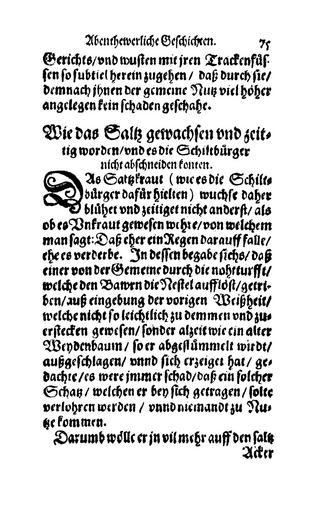 Abenthewerliche Geschichten. 75
Gerichts/vnd wusten mit jren Trackenfüs-
sen so subtiel herein zugehen / daß durch sie/
demnach jhnen der gemeine Nutz viel höher
angelegen kein schaden geschahe.
Wie das Saltz gewachsen vnd zeit-
tig worden/vnd es die Schiltbürger
nicht abschneiden konten.
DAs Saltzkraut (wie es die Schilt-
bürger dafür hielten) wuchse daher
blühet vnd zeitiget nicht anderst/ als
ob es Vnkraut gewesen wehre/von welchem
man sagt: Daß eher ein Regen darauff falle/
ehe es verderbe. In dessen begabe sichs/ daß
einer von der Gemeine durch die nohtturfft/
welche den Bawren die Nestel aufflöst/getri-
ben/auß eingebung der vorigen Weißheit/
welche nicht so leichtlich zu demmen vnd zu-
erstecken gewesen/sonder alzeit wie ein alter
Weydenbaum/ so er abgestümmelt wirdt/
außgeschlagen/ vnnd sich erzeiget hat/ ge-
dachte/es were jmmer schad/daß ein solcher
Schatz/ welchen er bey sich getragen/ solte
verlohren werden / vnnd niemandt zu Nu-
tze kommen.
Darumb wölle er in vil mehr auff den saltz
Acker